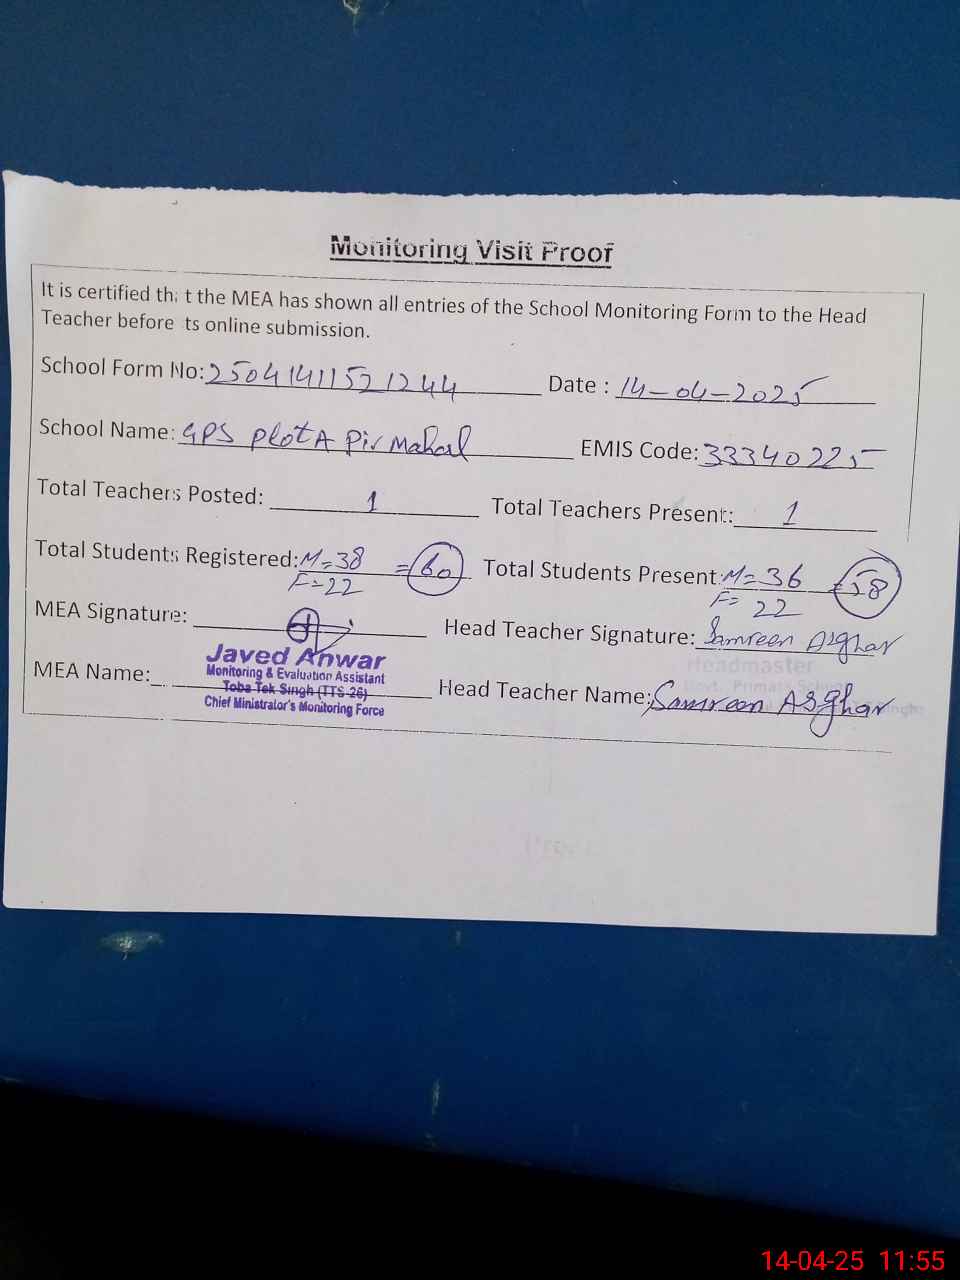 Monitoring Visit Proof
It is certified that the MEA has shown all entries of the School Monitoring Form to the Head
Teacher before its online submission.
School Form No: 25041411521244 Date : 14-04-2025
School Name: GPS Plot A Pir Mahal EMIS Code: 33340225
Total Teachers Posted: 1 Total Teachers Present: 1
Total Students Registered: M=38 =60 Total Students Present: M=36 =58
F=22 F=22
MEA Signature: Head Teacher Signature: Samreen Asghar
Javed Anwar Headmaster
Monitoring & Evaluation Assistant
MEA Name: Toba Tek Singh (TTS-26) Head Teacher Name: Samreen Asghar
Chief Minister's Monitoring Force
14-04-25 11:55